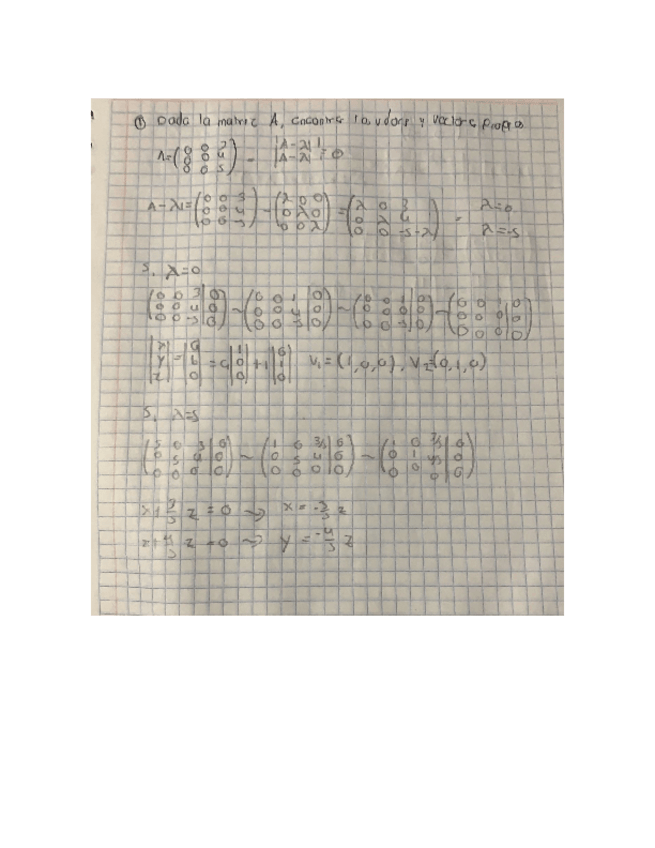 ① Dada la matriz A, encontrar los valores y vectores propios
A=(0 0 3 / 0 0 4 / 0 0 5) |A-λI|=0
A-λI=(0 0 3 / 0 0 4 / 0 0 -5)-(λ 0 0 / 0 λ 0 / 0 0 λ)=(λ 0 3 / 0 λ 4 / 0 0 -5-λ) λ=0 λ=-5
S. λ=0
(0 0 3|0 / 0 0 4|0 / 0 0 -5|0)~(0 0 1|0 / 0 0 4|0 / 0 0 -5|0)~(0 0 1|0 / 0 0 0|0 / 0 0 -5|0)~(0 0 1|0 / 0 0 0|0 / 0 0 0|0)
|x y z|=|a b 0|=a|1 0 0|+1|0 1 0| V1=(1,0,0), V2=(0,1,0)
S. λ=5
(5 0 3|0 / 0 5 4|0 / 0 0 0|0)~(1 0 3/5|0 / 0 5 4|0 / 0 0 0|0)~(1 0 3/5|0 / 0 1 4/5|0 / 0 0 0|0)
x+3/5 z=0 → x=-3/5 z
z+4/5 z=0 → y=-4/5 z